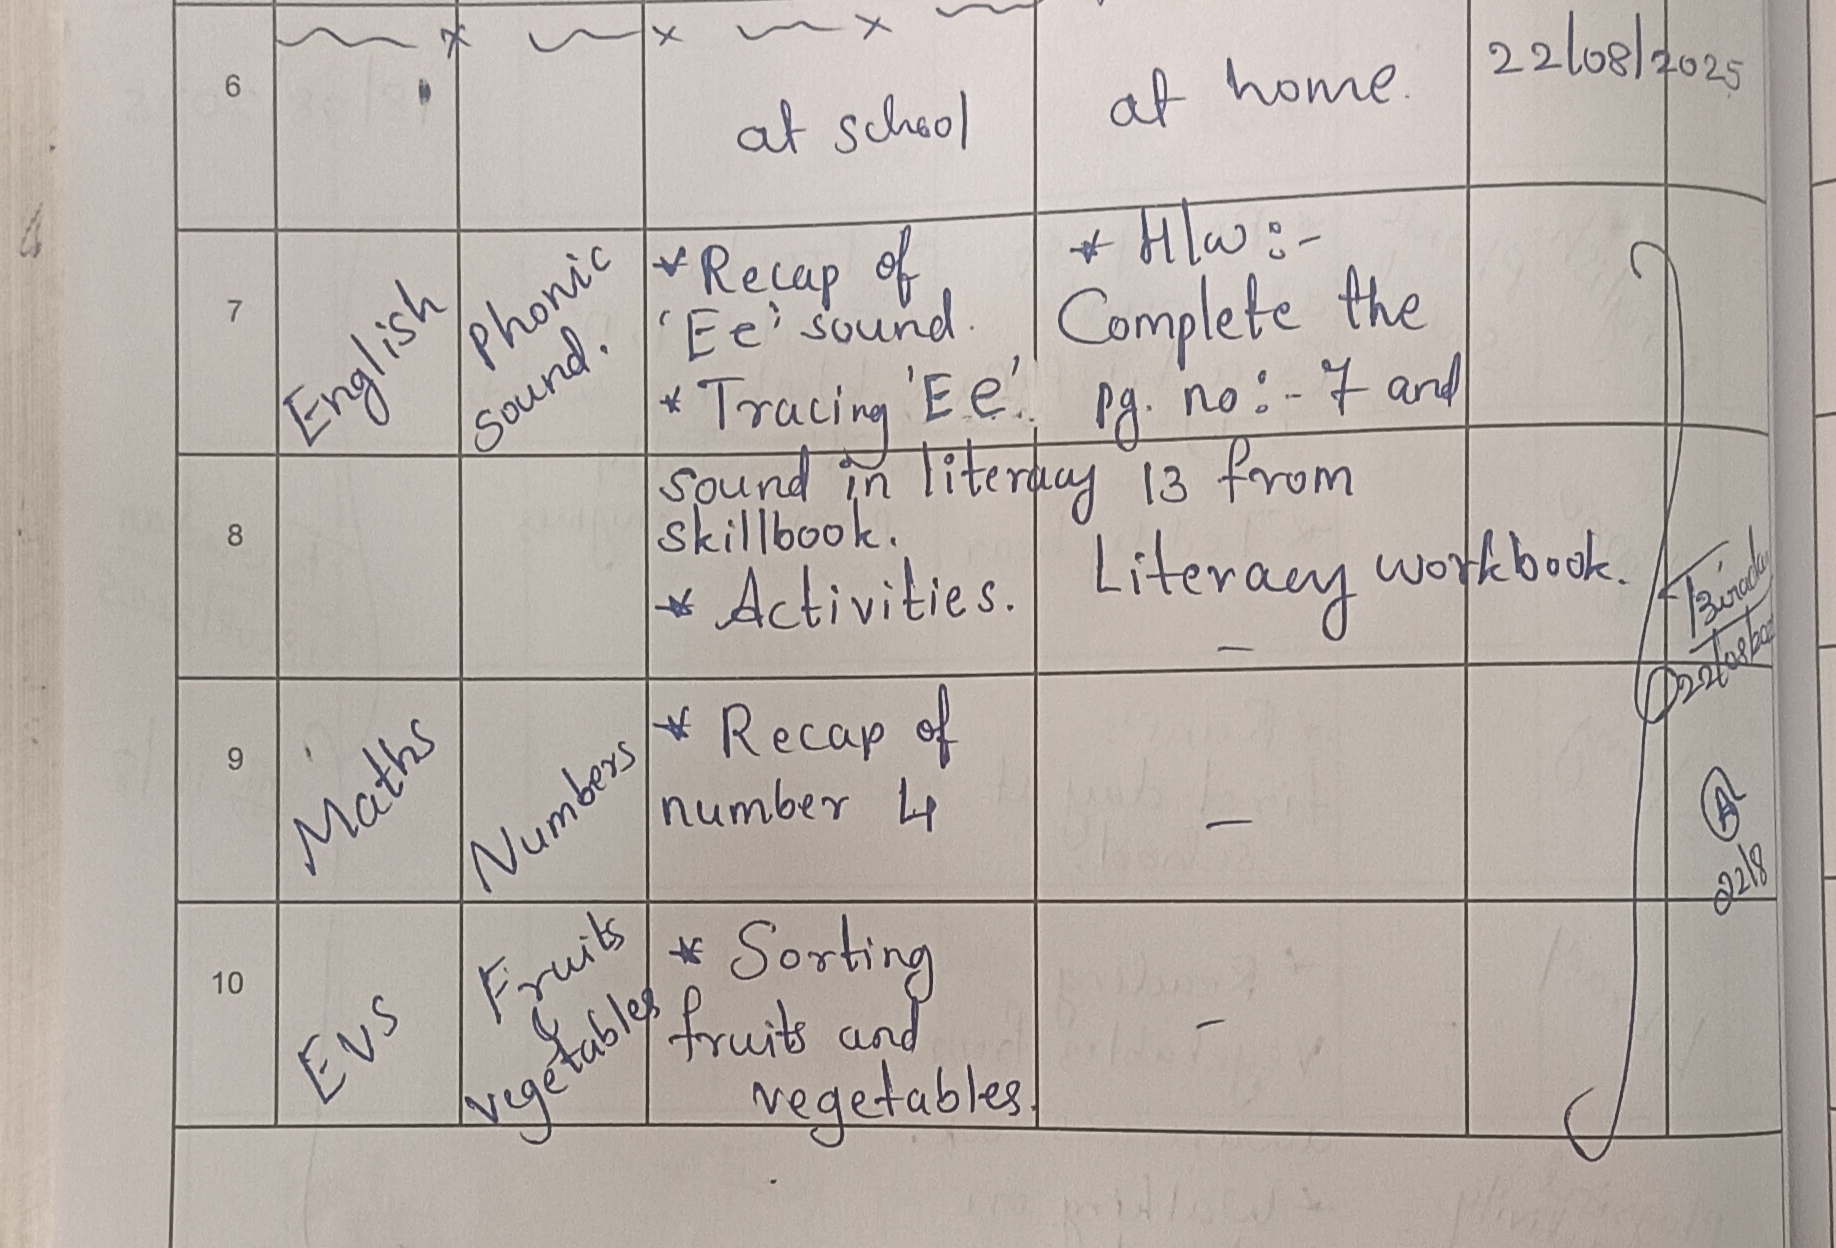 6 at school at home. 22/08/2025
7 English Phonic sound. * Recap of 'Ee' sound. * Tracing 'Ee' * H/w :- Complete the pg. no :- 7 and
8 sound in literacy skillbook. * Activities. 13 from Literacy workbook. -
22/08/202
9 Maths Numbers * Recap of number 4 -
22/8
10 EVS Fruits & vegetables * Sorting fruits and vegetables. -